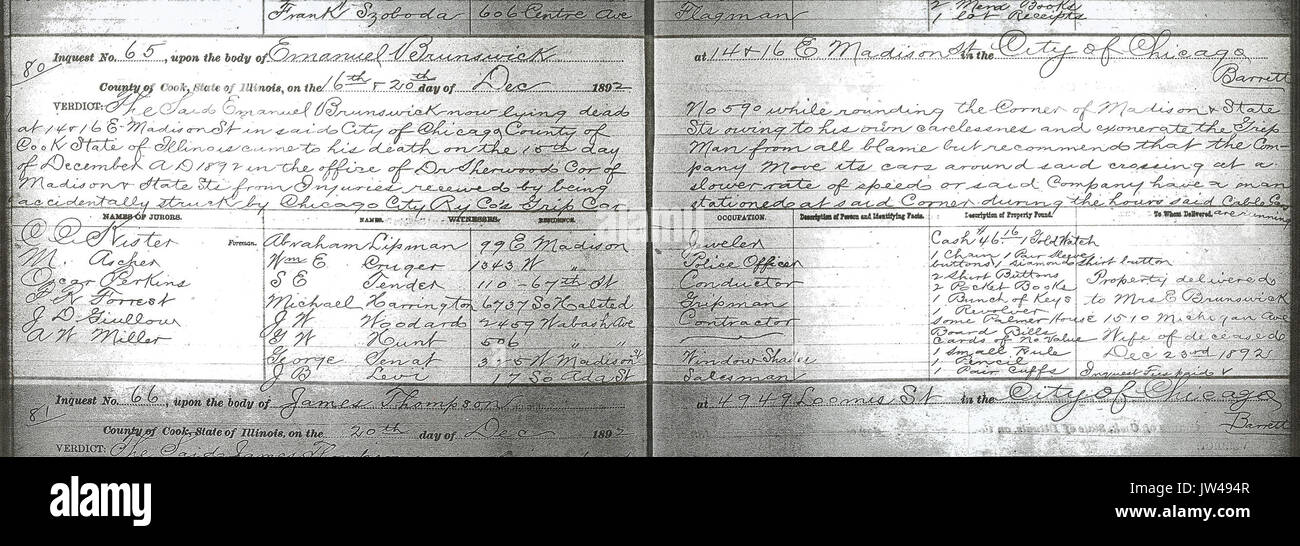 Frank Szoboda 606 Centre Ave Flagman 2 Mem Books
1 lot Receipts
80
Inquest No. 65, upon the body of Emanuel Brunswick at 14 & 16 E Madison St in the City of Chicago
County of Cook, State of Illinois, on the 16th & 20th day of Dec 1892
Barrett
VERDICT: The Said Emanuel Brunswick now lying dead
at 14 & 16 E. Madison St in said City of Chicago County of
Cook State of Illinois came to his death on the 15th day
of December A D 1892 in the office of Dr Sherwood Cor of
Madison & State Sts from Injuries received by being
accidentally struck by Chicago City Ry Co's Grip Car
No 590 while rounding the Corner of Madison & State
Sts owing to his own carelessnes and exonerate the Grip
Man from all blame but recommend that the Com-
pany Move its cars around said crossing at a
slower rate of speed or said Company have a man
stationed at said Corner during the hours said Cable Cars
are running
NAMES OF JURORS. NAMES. WITNESSES. RESIDENCE. OCCUPATION. Description of Person and Identifying Facts. Description of Property Found. To Whom Delivered.
C C Kister Foreman.
M. Ascher
Oscar Perkins
Forrest
J D
A W Miller
Abraham Lipman 99 E Madison Jeweler
Wm E Cruger 1343 W " Police Officer
S E Tender 110 - 67th St Conductor
Michael Harrington 6737 So Halsted Gripman
J W Woodard 2459 Wabash Ave Contractor
G W Hunt 506 " "
George Senat 315 W Madison St Window Shades
J B Levi 17 So Ada St Salesman
Cash $46.16 1 Gold Watch
1 Chain 1 Pair Sleeve
buttons 1 Diamond Shirt button
2 Shirt Buttons
2 Pocket Books
1 Bunch of Keys
1 Revolver
some Palmer House
Board Bills
Cards of no Value
1 small Rule
1 Pencil
1 Pair Cuffs
Property delivered
to Mrs E Brunswick
1510 Michigan Ave
Wife of deceased
Dec 23rd 1892
Inquest Fees paid
81
Inquest No. 66, upon the body of James Thompson at 4949 Loomis St in the City of Chicago
County of Cook, State of Illinois, on the 20th day of Dec 1892
Barrett
VERDICT: The Said James Thompson
alamy
a
a
alamy
Image ID: JW494R
www.alamy.com